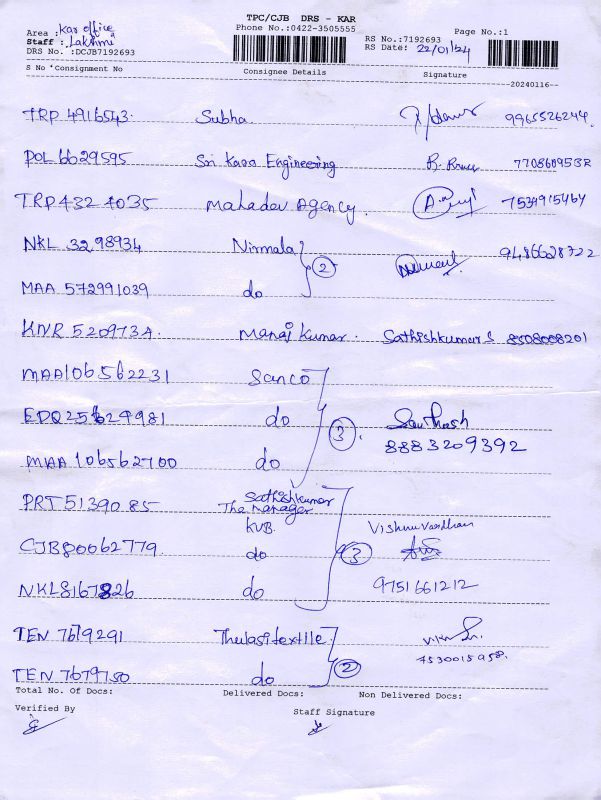 TPC/CJB DRS - KAR
Phone No.:0422-3505555
Area : Kar office
Staff : Lakshmi
DRS No. :DCJB7192693
RS No.:7192693 Page No.:1
RS Date: 22/01/24
S No *Consignment No Consignee Details Signature
20240116--
TRP 4916543 Subha 9965526244
POL 6629595 Sri Kaso Engineering 7708609532
TRP 432 4035 Mahadev Agency. 7534915464
NKL 3298934 Nirmala 2 9486628722
MAA 572991039 do
KNR 5209734 Manaj Kumar. Sathishkumar S 8508008201
MAA106562231 Sanco
EDQ25 624981 do 3. Santhosh
MAA 106562700 do 8883209392
PRT 5139085 Sathishkumar
The Manager
KVB. Vishnu Vardhan
CJB80062779 do 3
NKL8167826 do 9751661212
TEN 7679291 Thulasi textile
TEN 7679150 do 2 7530015958.
Total No. Of Docs: Delivered Docs: Non Delivered Docs:
Verified By Staff Signature